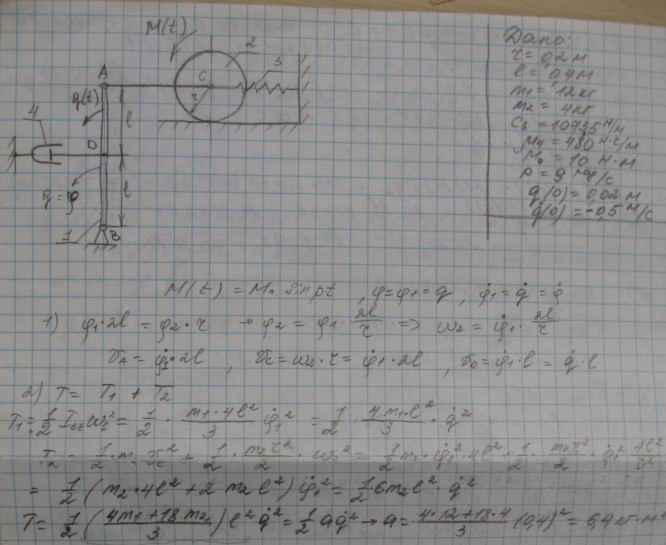 M(t)
2
3
A
C
q(t)
r
l
4
O
l
q = φ
1
B
Дано:
r = 0,2 м
l = 0,4 м
m₁ = 12 кг
m₂ = 4 кг
C₃ = 10435 н/м
μ₄ = 480 н·с/м
M₀ = 10 н·м
p = 9 рад/с
q(0) = 0,02 м
q̇(0) = -0,5 м/с
M(t) = M₀ sin pt , φ = φ₁ = q , φ̇₁ = q̇ = φ̇
1) φ₁·2l = φ₂·r → φ₂ = φ₁ · 2l/r => ω₂ = φ̇₁ · 2l/r
v_A = φ̇₁·2l , v_C = ω₂·r = φ̇₁·2l , v_O = φ̇₁·l = q̇·l
2) T = T₁ + T₂
T₁ = 1/2 ω₁² = 1/2 · m₁·4l²/3 φ̇₁² = 1/2 · 4m₁l²/3 · q̇²
T₂ = 1/2 · m₂ v_C² + 1/2 · m₂r²/2 · ω₂² = 1/2 m₂ · φ̇₁² · 4l² + 1/2 · m₂r²/2 · φ̇₁² 4l²/r²
= 1/2 (m₂·4l² + 2m₂l²) φ̇₁² = 1/2 6m₂l² · q̇²
T = 1/2 (4m₁+18m₂/3) l² q̇² = 1/2 a q̇² → a = 4·12+18·4/3 (0,4)² = 6,4 кг·м²